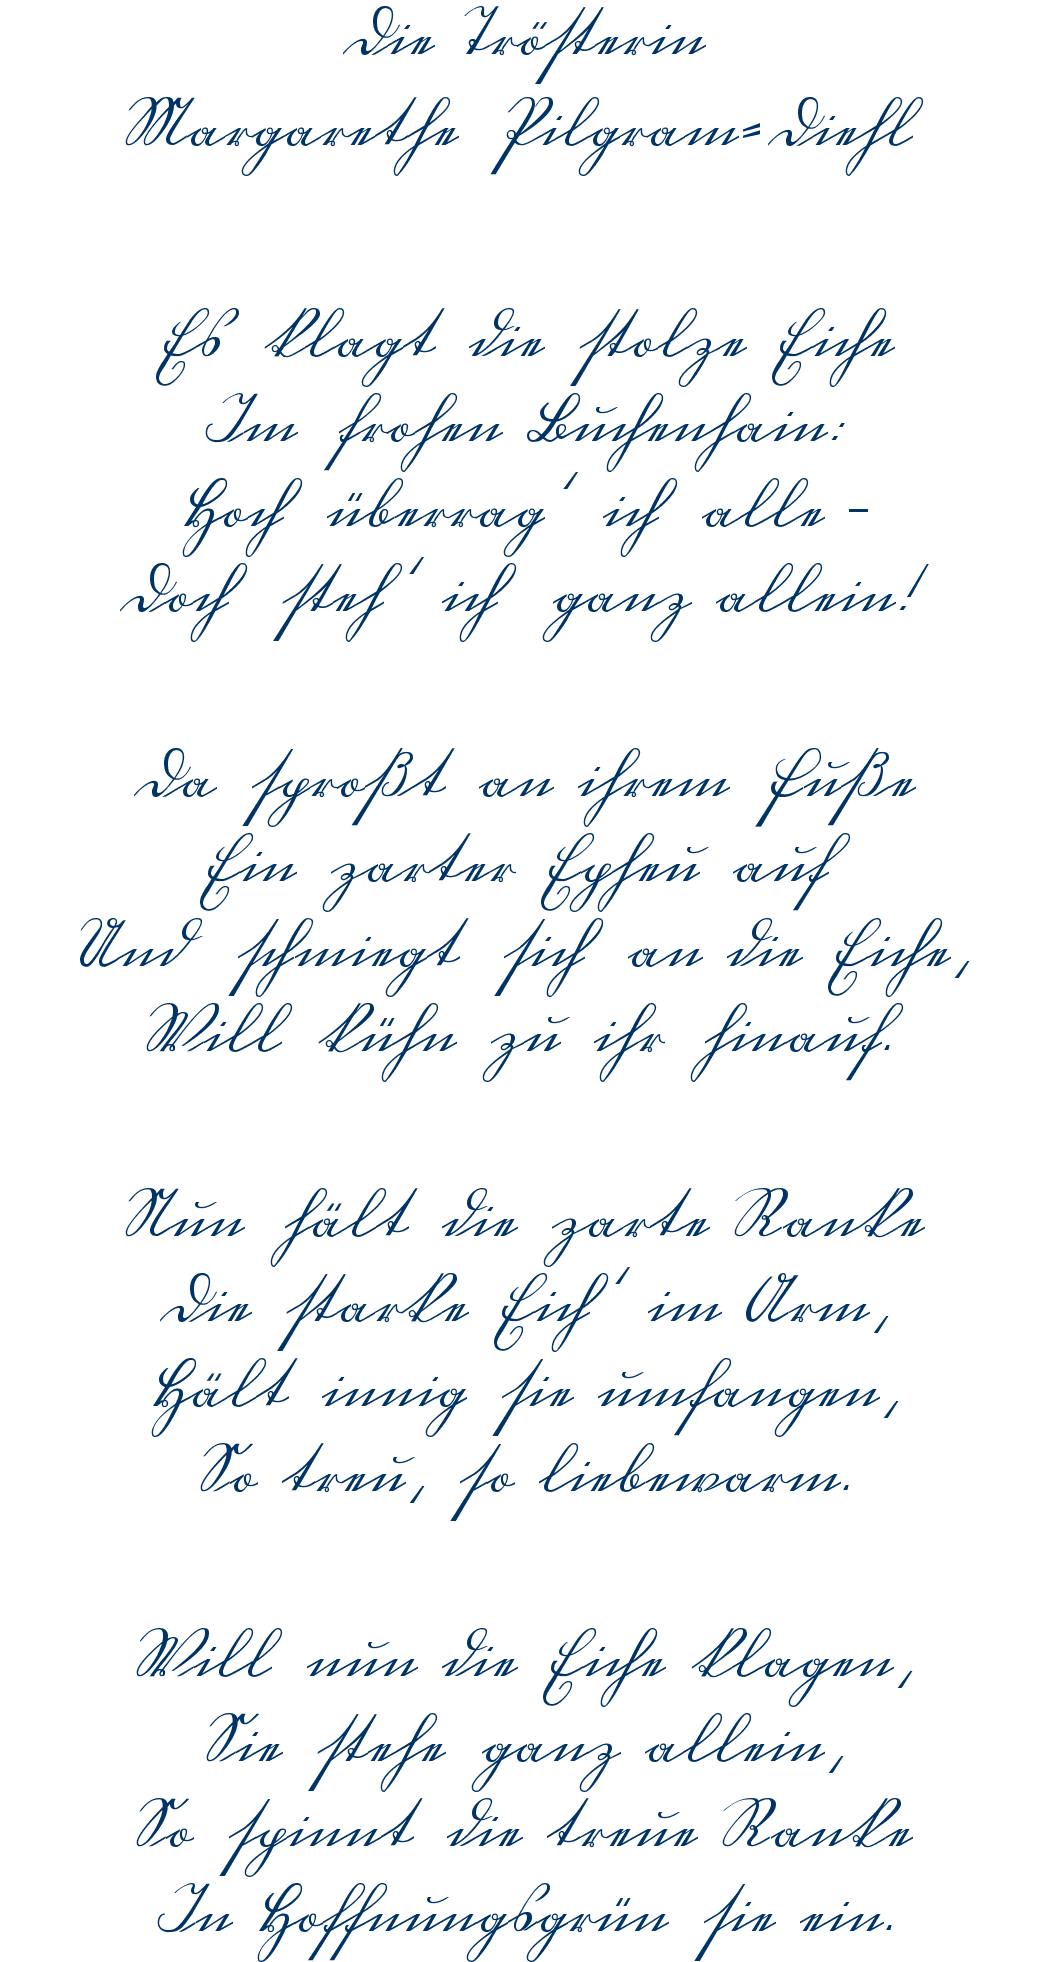 Die Trösterin
Margarethe Pilgram=Diehl
Es klagt die stolze Eiche
Im frohen Buchenhain:
Hoch überrag' ich alle –
Doch steh' ich ganz allein!
Da sproßt an ihrem Fuße
Ein zarter Epheu auf
Und schmiegt sich an die Eiche,
Will kühn zu ihr hinauf.
Nun hält die zarte Ranke
Die starke Eich' im Arm,
Hält innig sie umfangen,
So treu, so liebewarm.
Will nun die Eiche klagen,
Sie stehe ganz allein,
So spinnt die treue Ranke
In Hoffnungsgrün sie ein.